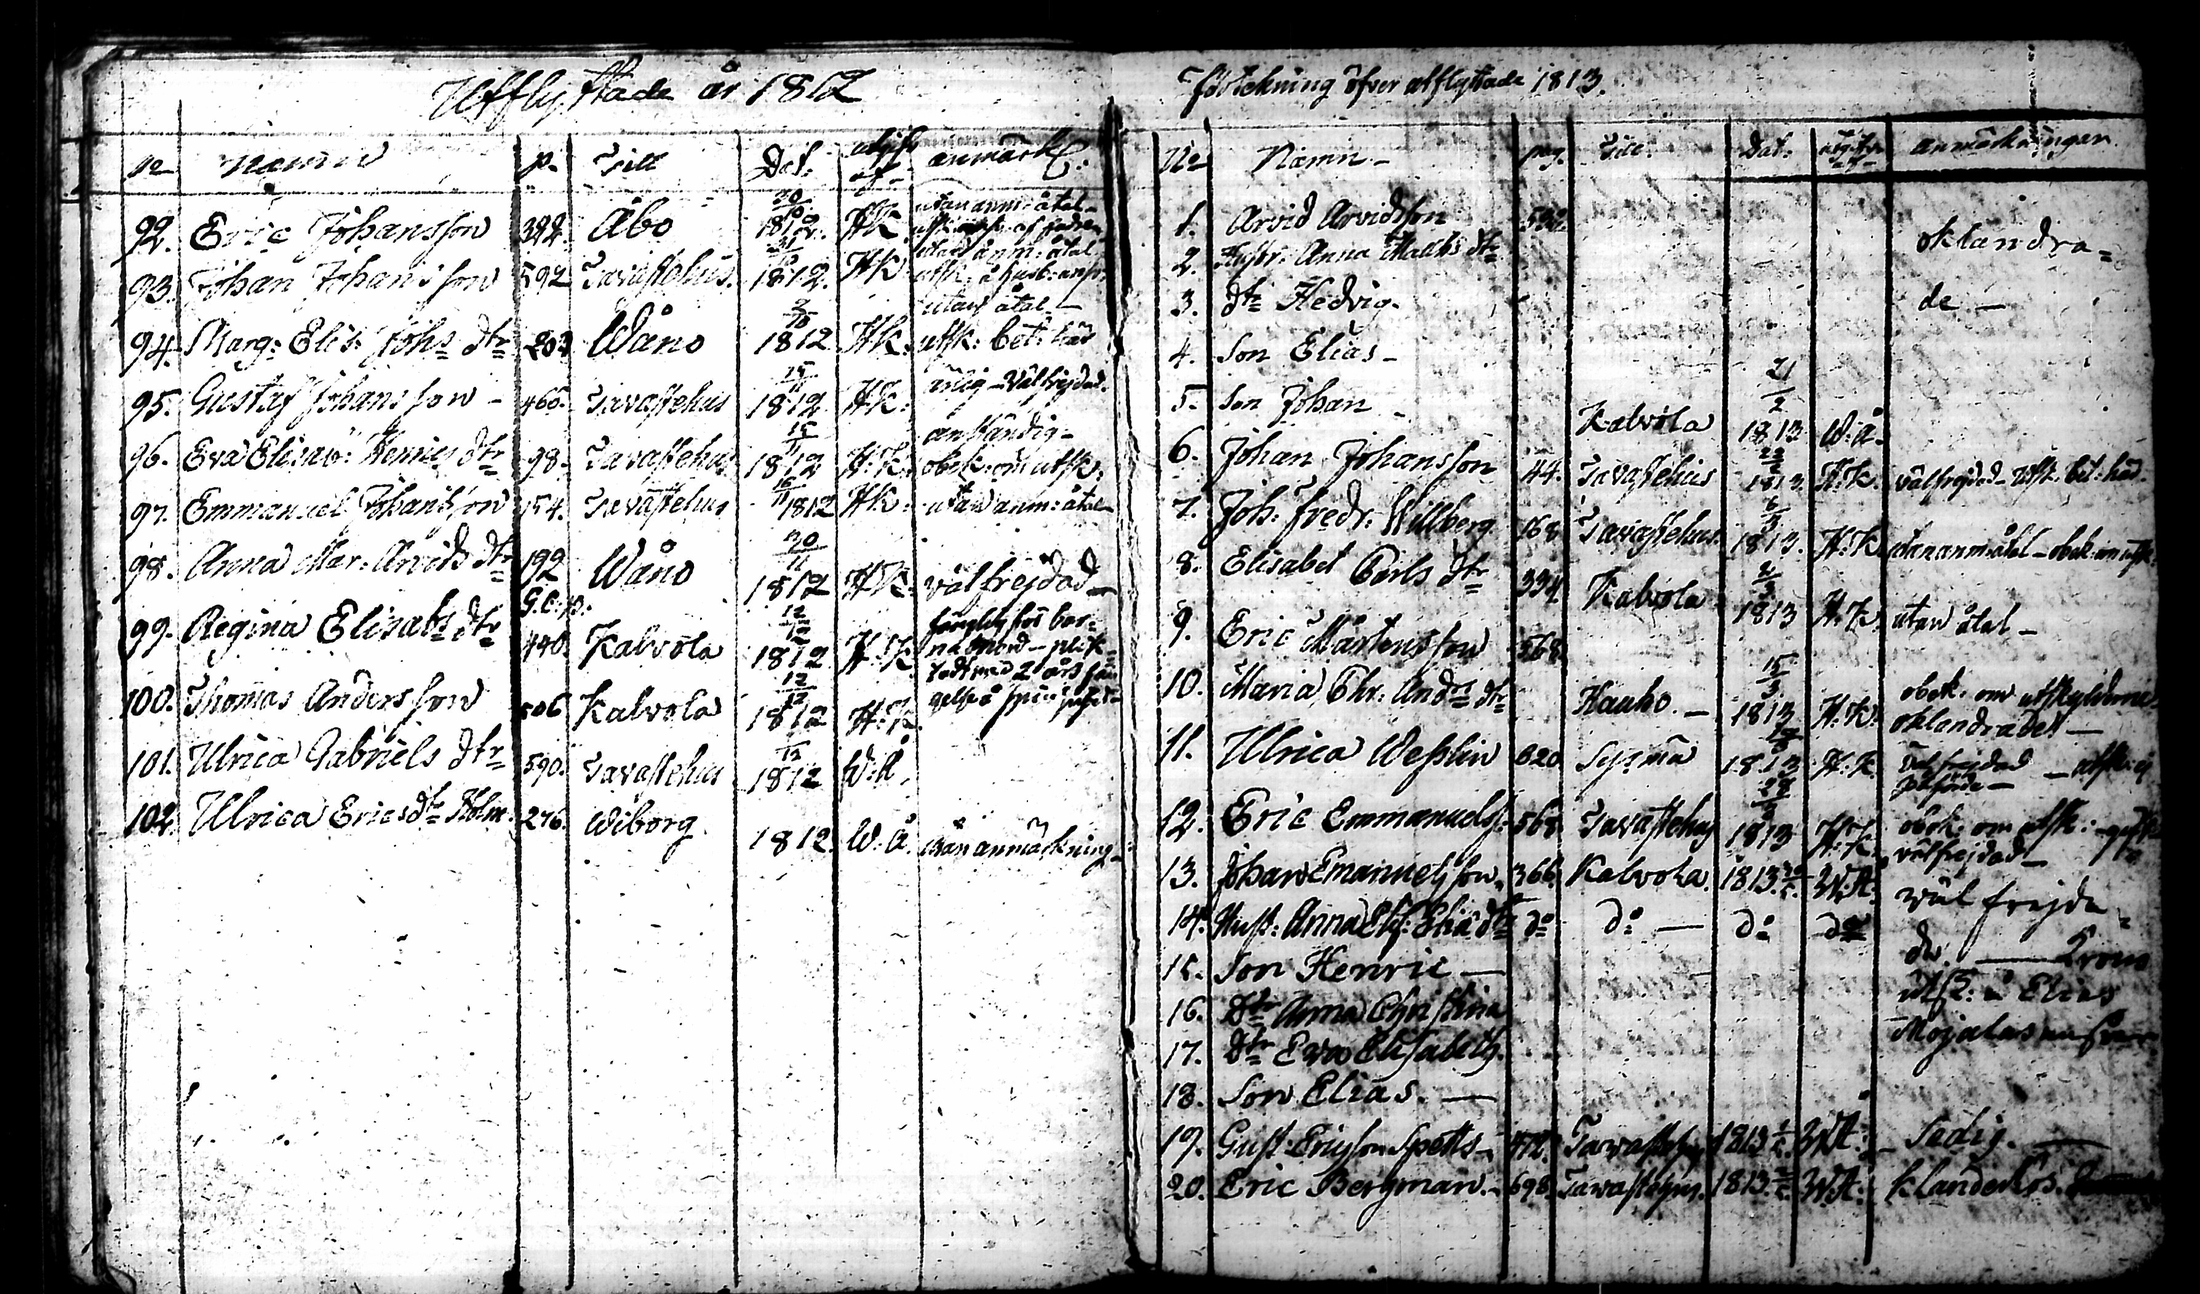 Utflyttade år 1812
No Namn p. Till Dat. anmärkn:
92. Eric Johansson 322. Åbo 30/10 1812. H.K. utan anm: åtal
93. Johan Johansson 592 Tavastehus. 31/10 1812. H.K.
utan åtal
94. Marg: Elis: Johs dtr 203 Wåno 2/10 1812 H.K. utsk: bet: här
95. Gustaf Johansson 466. Tavastehus 15/11 1812 H.K. ärlig - välfrejdad.
anständig
96. Eva Elisab: Henrics dtr 98. Tavastehus 15/11 1812 H.K. obek: om utsk:
97. Emmanuel Johansson 154. Tavastehus 16/11 1812 H.K. utan anm: åtal
98. Anna Mar: Arvids dtr 192 Wåno 30/11 1812 H.K. välfrejdad
G.C.p.
99. Regina Elisabts dtr 440. Kalvola 12/12 1812 H.K. för bar-
namord - plik-
tadt med 2 års fän-
gelse å spinhuset
100. Thomas Andersson 506 Kalvola 12/12 1812 H.K.
101. Ulrica Gabriels dtr 590. Tavastehus 1812 W.Å.
102. Ulrica Ericsdtr Holm. 276. Wiborg. 1812. W.Å. utan anmärkning
Förtekning öfver utflyttade 1813.
No Namn pag. Till. Dat. anmärkningar.
1. Arvid Arvidsson 592. oklandra-
2. Hustr: Anna Matths dtr
3. dtr Hedvig. de
4. Son Elias
5. Son Johan Kalvola 21/2 1813 W.Å.
6. Johan Johansson 44. Tavastehus 1813. H.K. välfrejdad utsk. bet: här.
7. Joh: Fredr: Willberg 168 Tavastehus. 1813. H.K. utan anm: åtal - obek: om utsk:
8. Elisabet Carls dtr 334 Kalvola 1813 H.K. utan åtal
9. Eric Mårtensson 568.
10. Maria Chr: Andrs dtr Hauho. 15/3 1813 H.K. obek. om utskylderne
oklandradet
11. Ulrica Wesslin 620 Sysmä 1813 H.K. välfrejdad
12. Eric Emmanuels. 568 Tavastehus 1813 H.K. obek. om utsk:
välfrejdad
13. Johan Emanuelsson. 366. Kalvola. 1813. W.Å. väl frejda-
14. Hust: Anna Elis: Eliæ dtr do do do do
de. Krono
15. Son Henric
utsk: å Elias
16. Dtr Anna Christina
Mojalas ansvar
17. Dtr Eva Elisabeth.
18. Son Elias.
19. Gust: Ericson Spetts 472. Tavasteh. 1813 W.Å. Sedig.
20. Eric Bergman. 698. Tavastehus. 1813. W.Å. klanderlös.